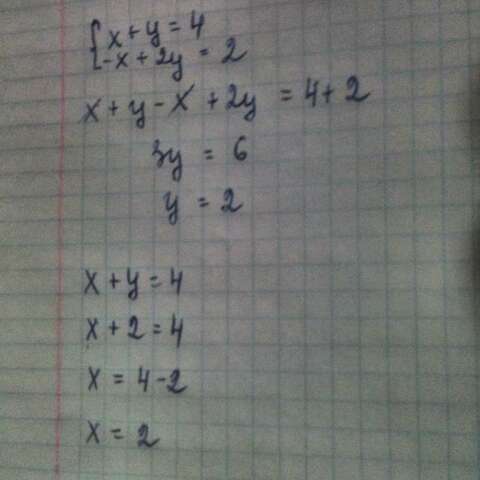 { x + y = 4
-x + 2y = 2
x + y - x + 2y = 4 + 2
3y = 6
y = 2
x + y = 4
x + 2 = 4
x = 4 - 2
x = 2